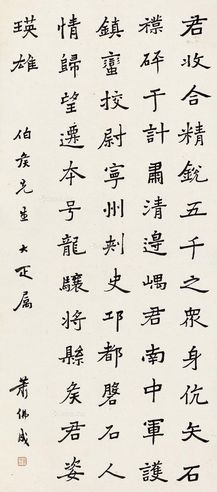 君收合精銳五千之眾身伉矢石
撲砕千計肅清邊嵎君南中軍護
鎮蠻挍尉寧州刾史邛都磐石人
情歸望遷本号龍驤將縣矦君姿
瑛雄
伯矦先生大正屬
蕭佛成